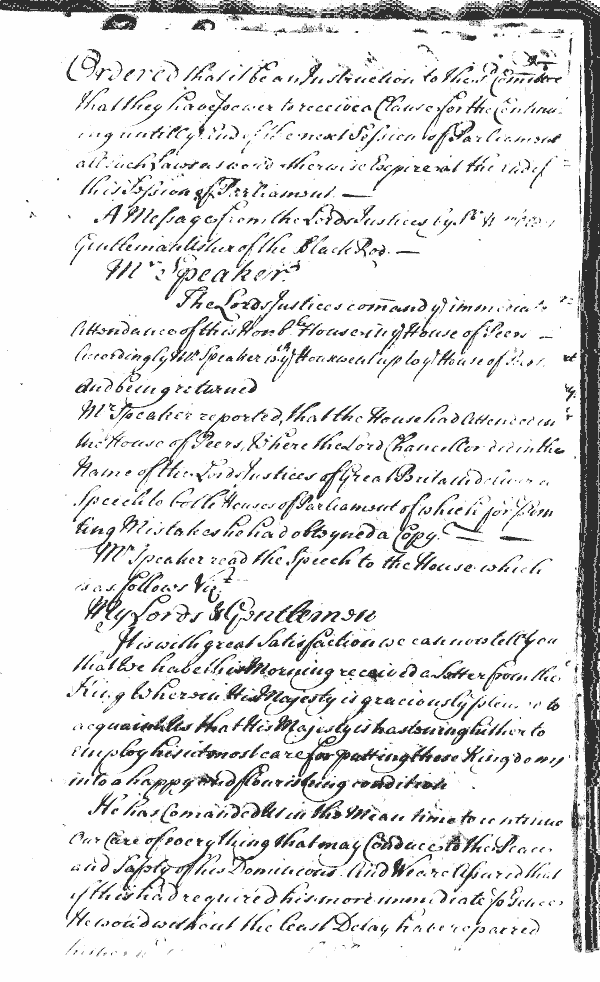 Ordered that it be an Instruction to the sd Comittee
that they have power to receive a Clause for the Continu-
ing untill ye End of the next Session of Parliament
all such Laws as would otherwise Expire at the end of
this Session of Parliament —
A Message from the Lords Justices by Sr
Gentleman Usher of the Black Rod. —
Mr Speaker
The Lords Justices comand ye immediate
Attendance of this Honble House in ye House of Peers —
Accordingly Mr Speaker wth ye House went up to ye House of Peers
and being returned
Mr Speaker reported, that the House had Attended in
the House of Peers, Where the Lord Chancellor did in the
Name of the Lords Justices of Great Britain deliver a
Speech to both Houses of Parliament of which for preven
ting Mistakes he had obteyned a Copy. — —
Mr Speaker read the Speech to the House which
is as follows Vizt
My Lords & Gentlemen
It is with great Satisfaction we can now tell you
that We have this Morning received a Letter from the
King Wherein His Majesty is graciously pleased to
acquaint Us that His Majesty is hastening hither to
employ his utmost care for putting these Kingdoms
into a happy and flourishing condition
He has Comanded Us in the Mean time to continue
Our Care of every thing that may Conduce to the Peace
and Safety of his Dominions. And We are Assured that
if this had required his more immediate
He would without the least Delay have repaired
hither